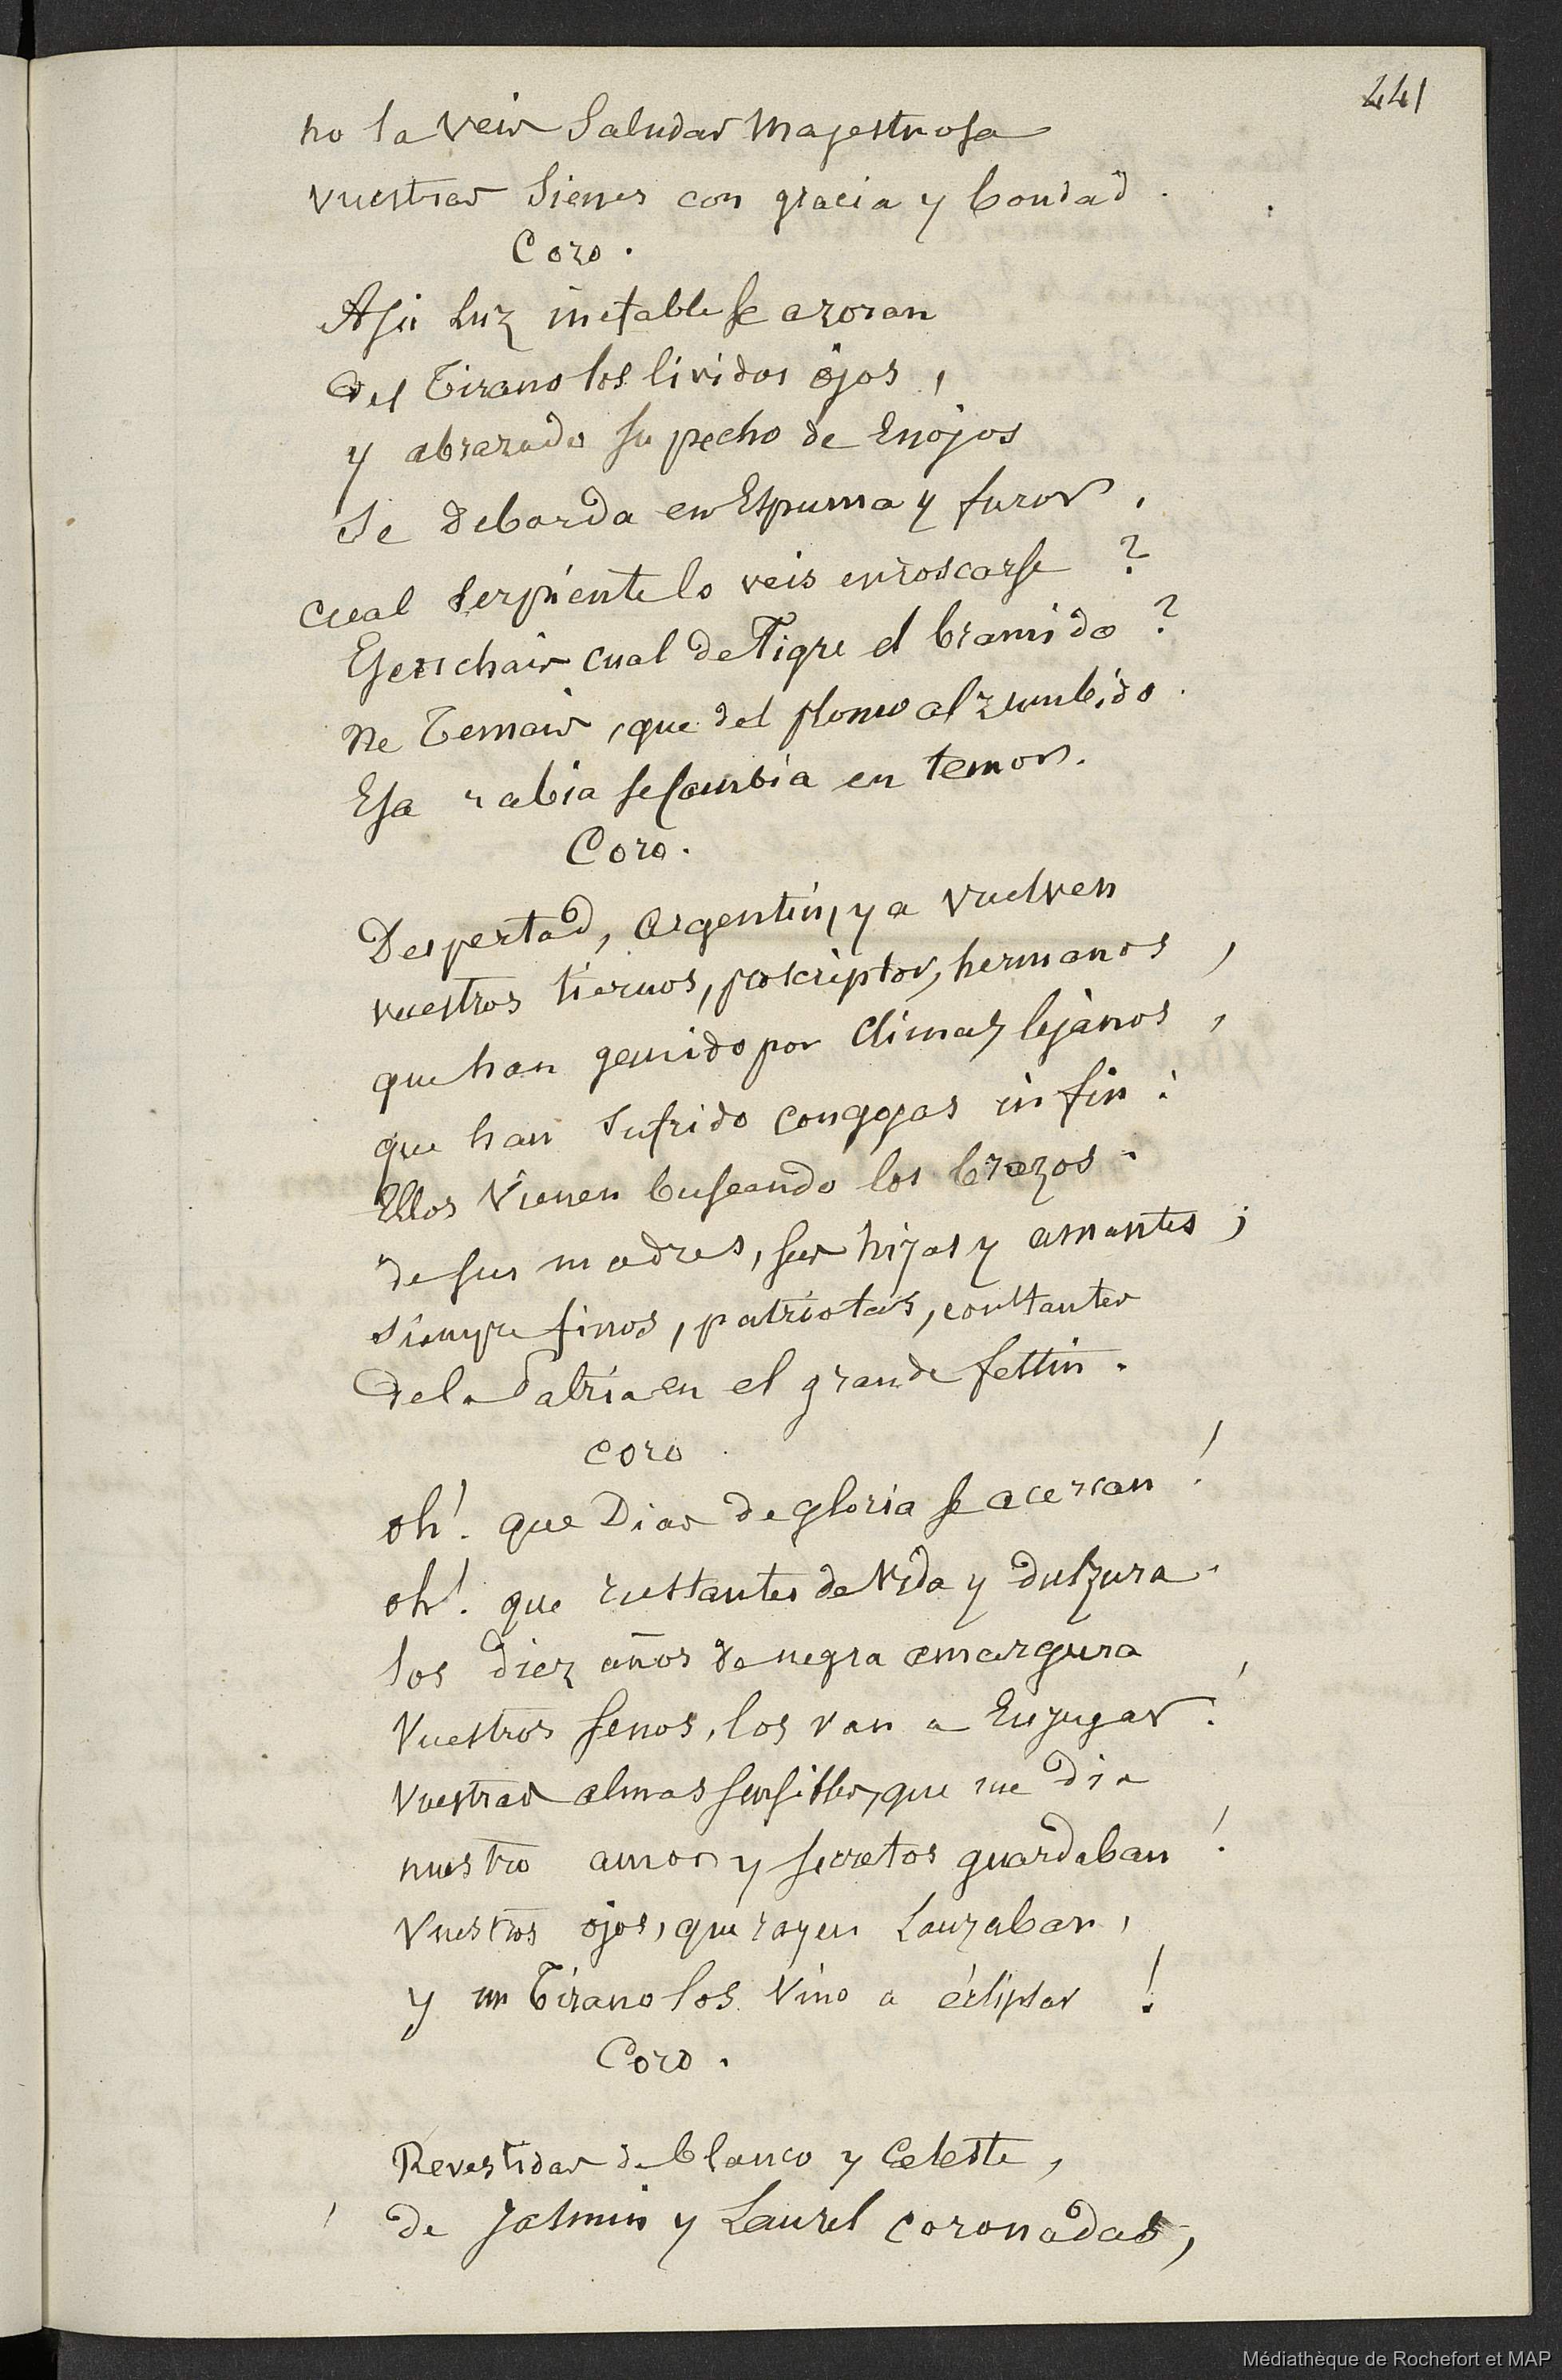 441
no la veis Saludar Magestuosa
vuestras Sienes con gracia y bondad.
Coro.
A su Luz inefable se azoran
del Tirano los lividos ojos,
y abrazado su pecho de Enojos
se deborda en Espuma y furor.
Cual Serpiente lo veis enroscarse ?
Escuchais cual de Tigre el bramido ?
no Temais, que del plomo al zumbido.
Esa rabia se Cambia en temor.
Coro.
Despertad, Argentin, ya vuelven
vuestros tiernos, proscriptos, hermanos,
que han gemido por Climas lejanos,
que han Sufrido Congojas sin fin:
Ellos Vienen buscando los brazos.
de sus madres, sus hijas y amantes;
siempre finos, patriotas, constantes
de la Patria en el grande festin.
coro.
Oh! que Dias de gloria se acercan !
oh! que instantes de Vida y dulzura.
los diez años de negra amargura
Vuestros senos, los van a Enjugar!
Vuestras almas sensibles, que un dia
nuestro amor y secretos guardaban !
Vuestros ojos, que rayen Lanzaban,
y un Tirano los Vino a eclipsar !
Coro.
Revestidas de blanco y Celeste,
de Jasmin y Laurel coronadas,
Médiathèque de Rochefort et MAP